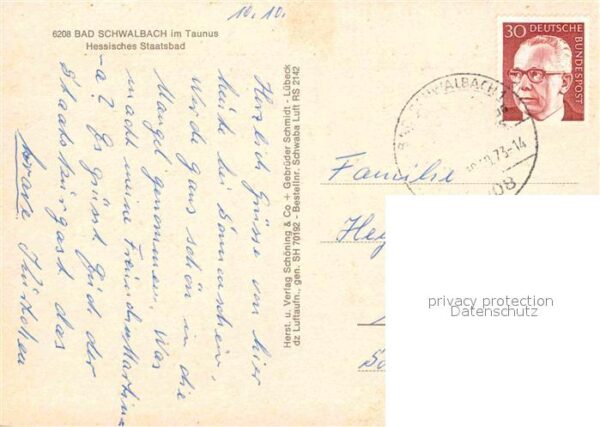 10.10.
6208 BAD SCHWALBACH im Taunus
Hessisches Staatsbad
Herzlich Grüsse von hier
heute bei Sonnenschein.
Werde ganz schön in die
Mangel genommen. Was
macht meine Freundin Martina
-a? Es grüsst Euch der
Staatskurgast das
Herst. u. Verlag Schöning & Co + Gebrüder Schmidt - Lübeck
dz Luftaufn., gen. SH 70192 - Bestellnr. Schwaba Luft RS 2142
30 DEUTSCHE
BUNDESPOST
SCHWALBACH
10.73-14
Familie
Hey
privacy protection
Datenschutz